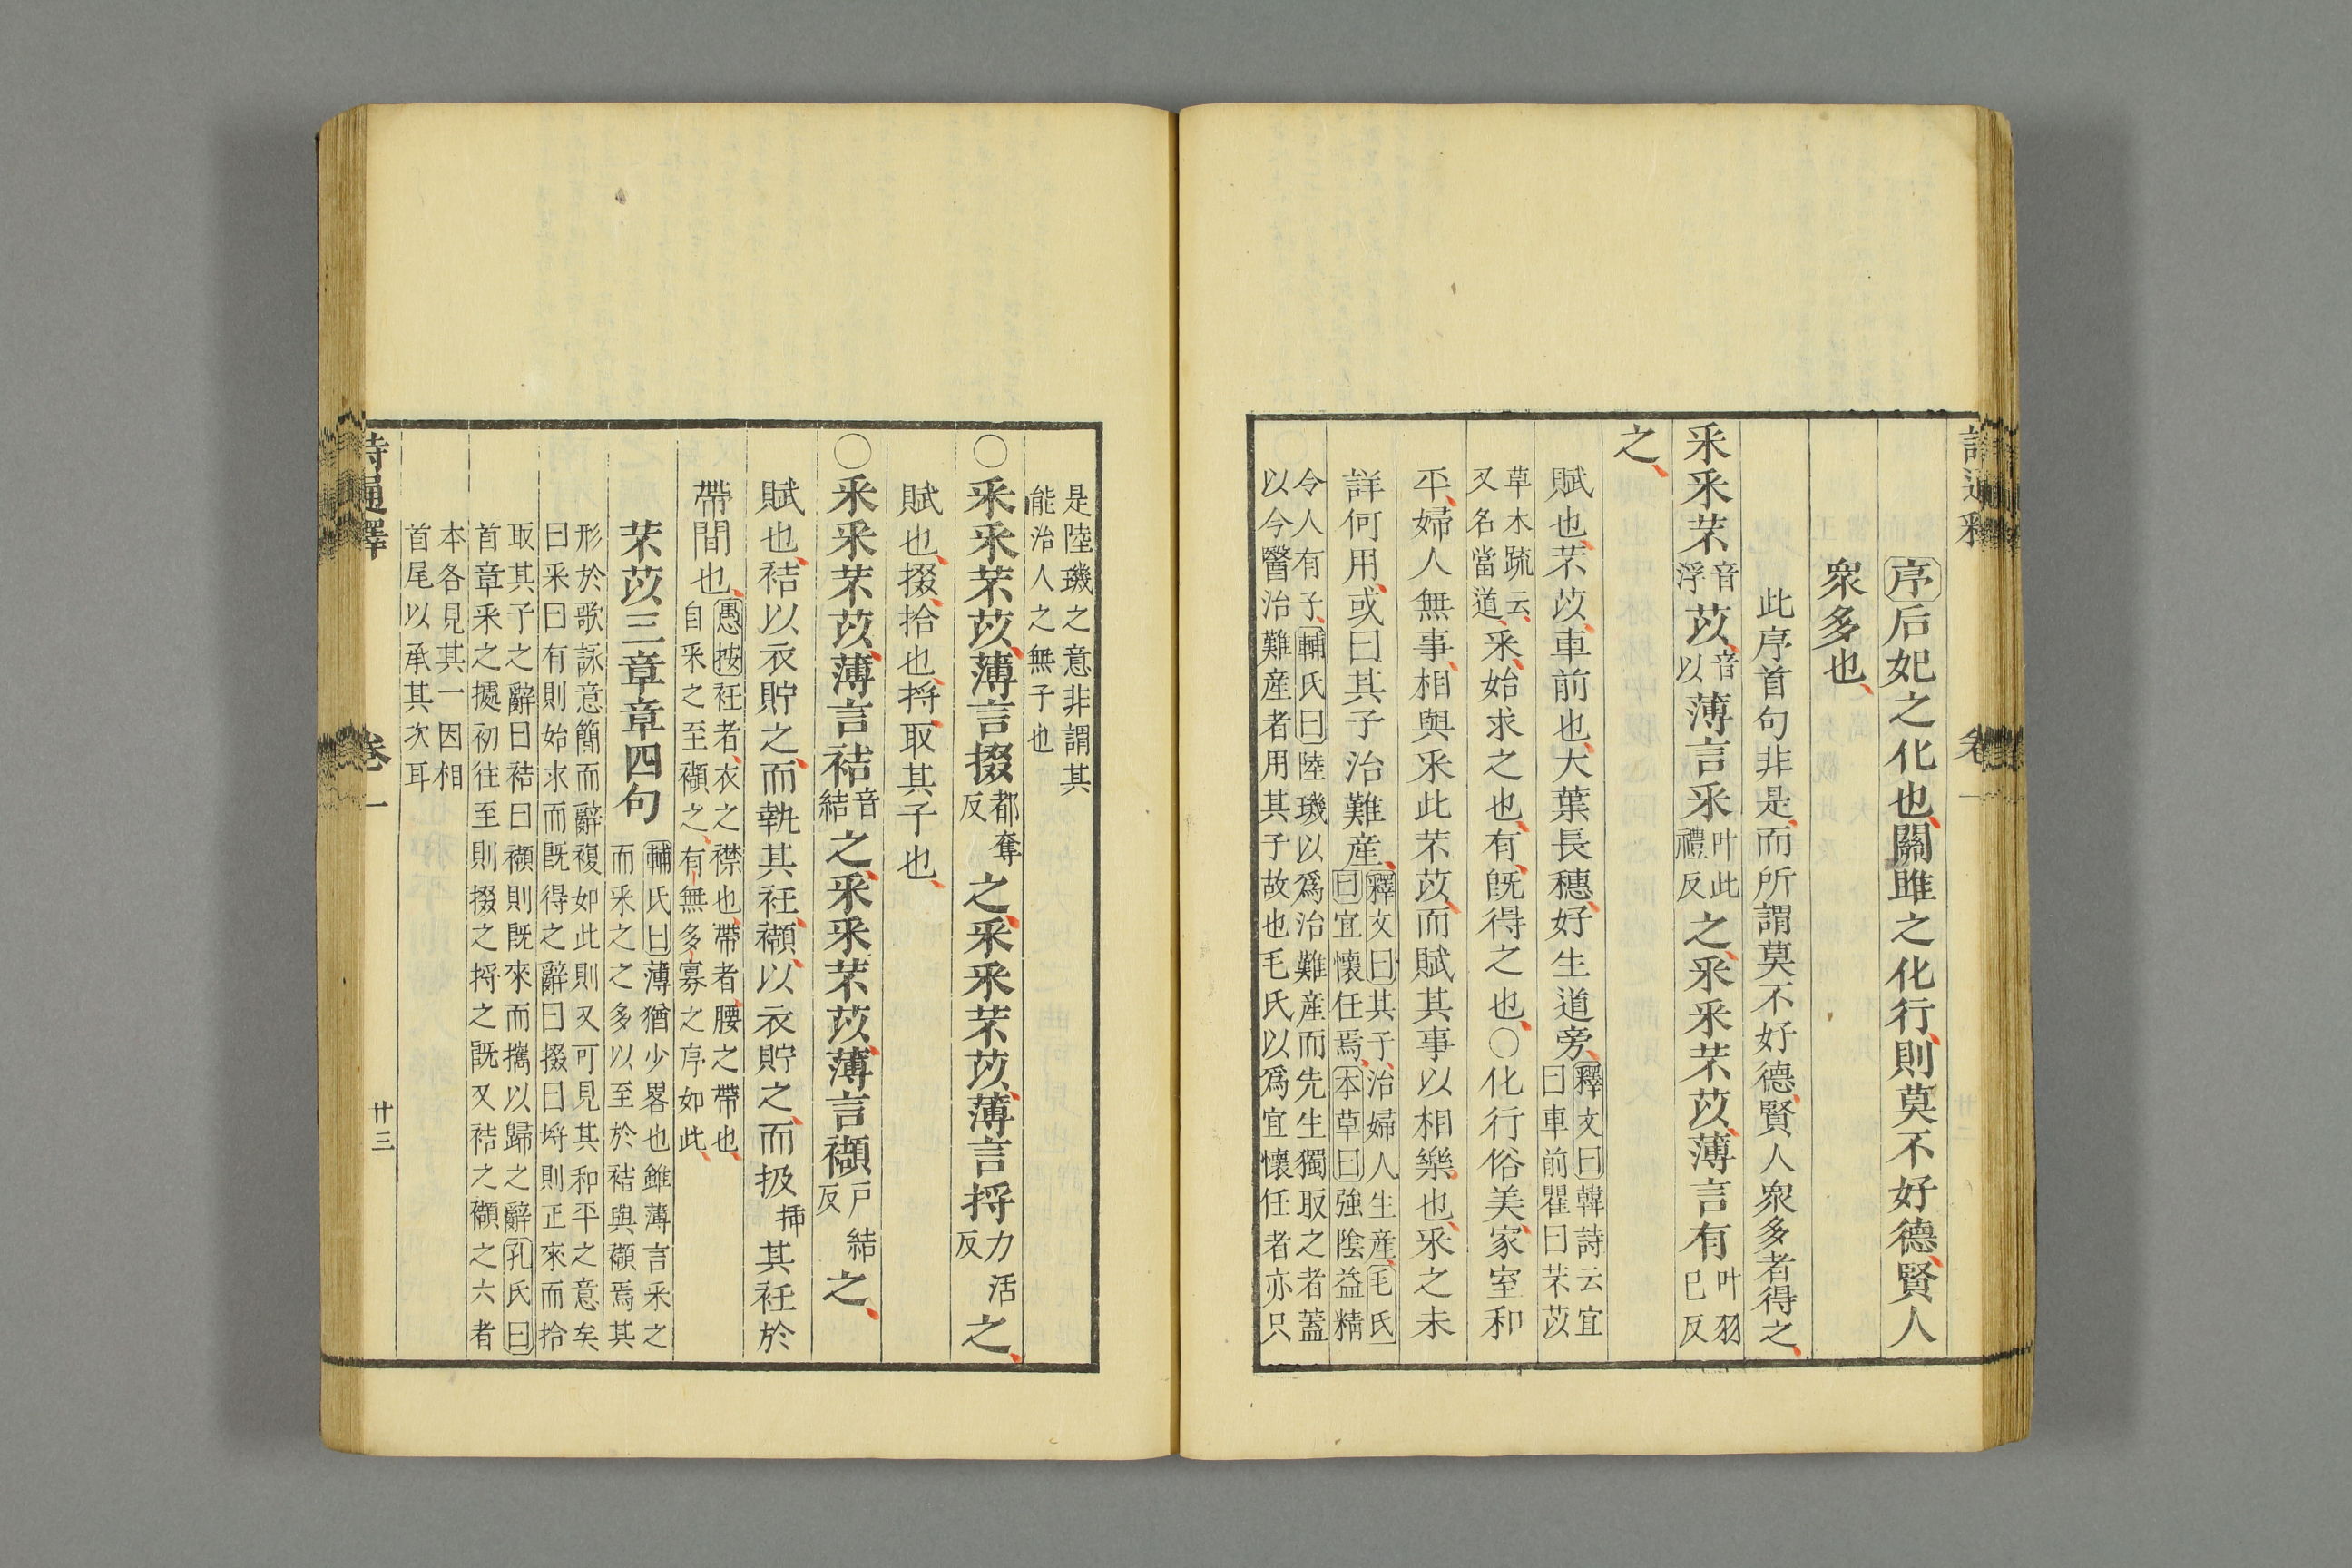 序后妃之化也關雎之化行則莫不好德賢人
衆多也
此序首句非是而所謂莫不好德賢人衆多者得之
采采芣音浮苡音以薄言采叶此禮反之采采芣苡薄言有叶羽已反
之
賦也芣苡車前也大葉長穗好生道旁釋文曰韓詩云宜曰車前瞿曰芣苡
草木疏云又名當道采始求之也有既得之也○化行俗美家室和
平婦人無事相與采此芣苡而賦其事以相樂也采之未
詳何用或曰其子治難産釋文曰其子治婦人生産毛氏曰宜懷任焉本草曰強陰益精
令人有子輔氏曰陸璣以爲治難産而先生獨取之者蓋
以今醫治難産者用其子故也毛氏以爲宜懷任者亦只
是陸璣之意非謂其
能治人之無子也
○采采芣苡薄言掇都奪反之采采芣苡薄言捋力活反之
賦也掇拾也捋取其子也
○采采芣苡薄言袺音結之采采芣苡薄言襭戸結反之
賦也袺以衣貯之而執其衽襭以衣貯之而扱揷其衽於
帶間也愚按衽者衣之襟也帶者腰之帶也自采之至襭之有無多寡之序如此
芣苡三章章四句輔氏曰薄猶少畧也雖薄言采之而采之之多以至於袺與襭焉其
形於歌詠意簡而辭複如此則又可見其和平之意矣
曰采曰有則始求而既得之辭曰掇曰捋則正來而拾
取其子之辭曰袺曰襭則既來而攜以歸之辭孔氏曰
首章采之據初往至則掇之捋之既又袺之襭之六者
本各見其一因相
首尾以承其次耳
詩通釋
卷一
廿三